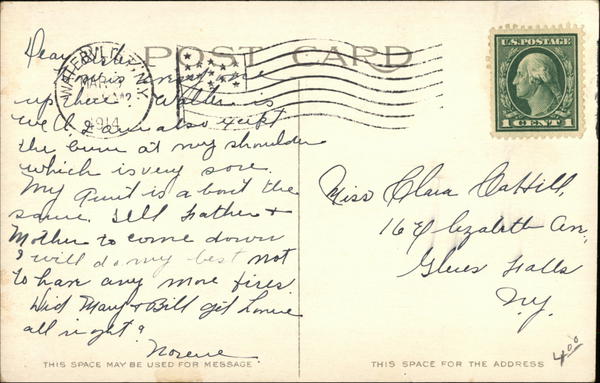 POST CARD
WATERVLIET, N.Y.
MAR
1914
U.S. POSTAGE
1 CENT 1
Dear Sister
up here. Walter is
well I am also except
the burn at my shoulder
which is very sore.
My Aunt is about the
same. Tell Father &
Mother to come down
I will do my best not
to have any more fires.
Did Mary & Bill get home
all right?
Norene
Miss Clara Cahill,
16 Elizabeth Av.,
Glens Falls
N.Y.
4.00
THIS SPACE MAY BE USED FOR MESSAGE
THIS SPACE FOR THE ADDRESS